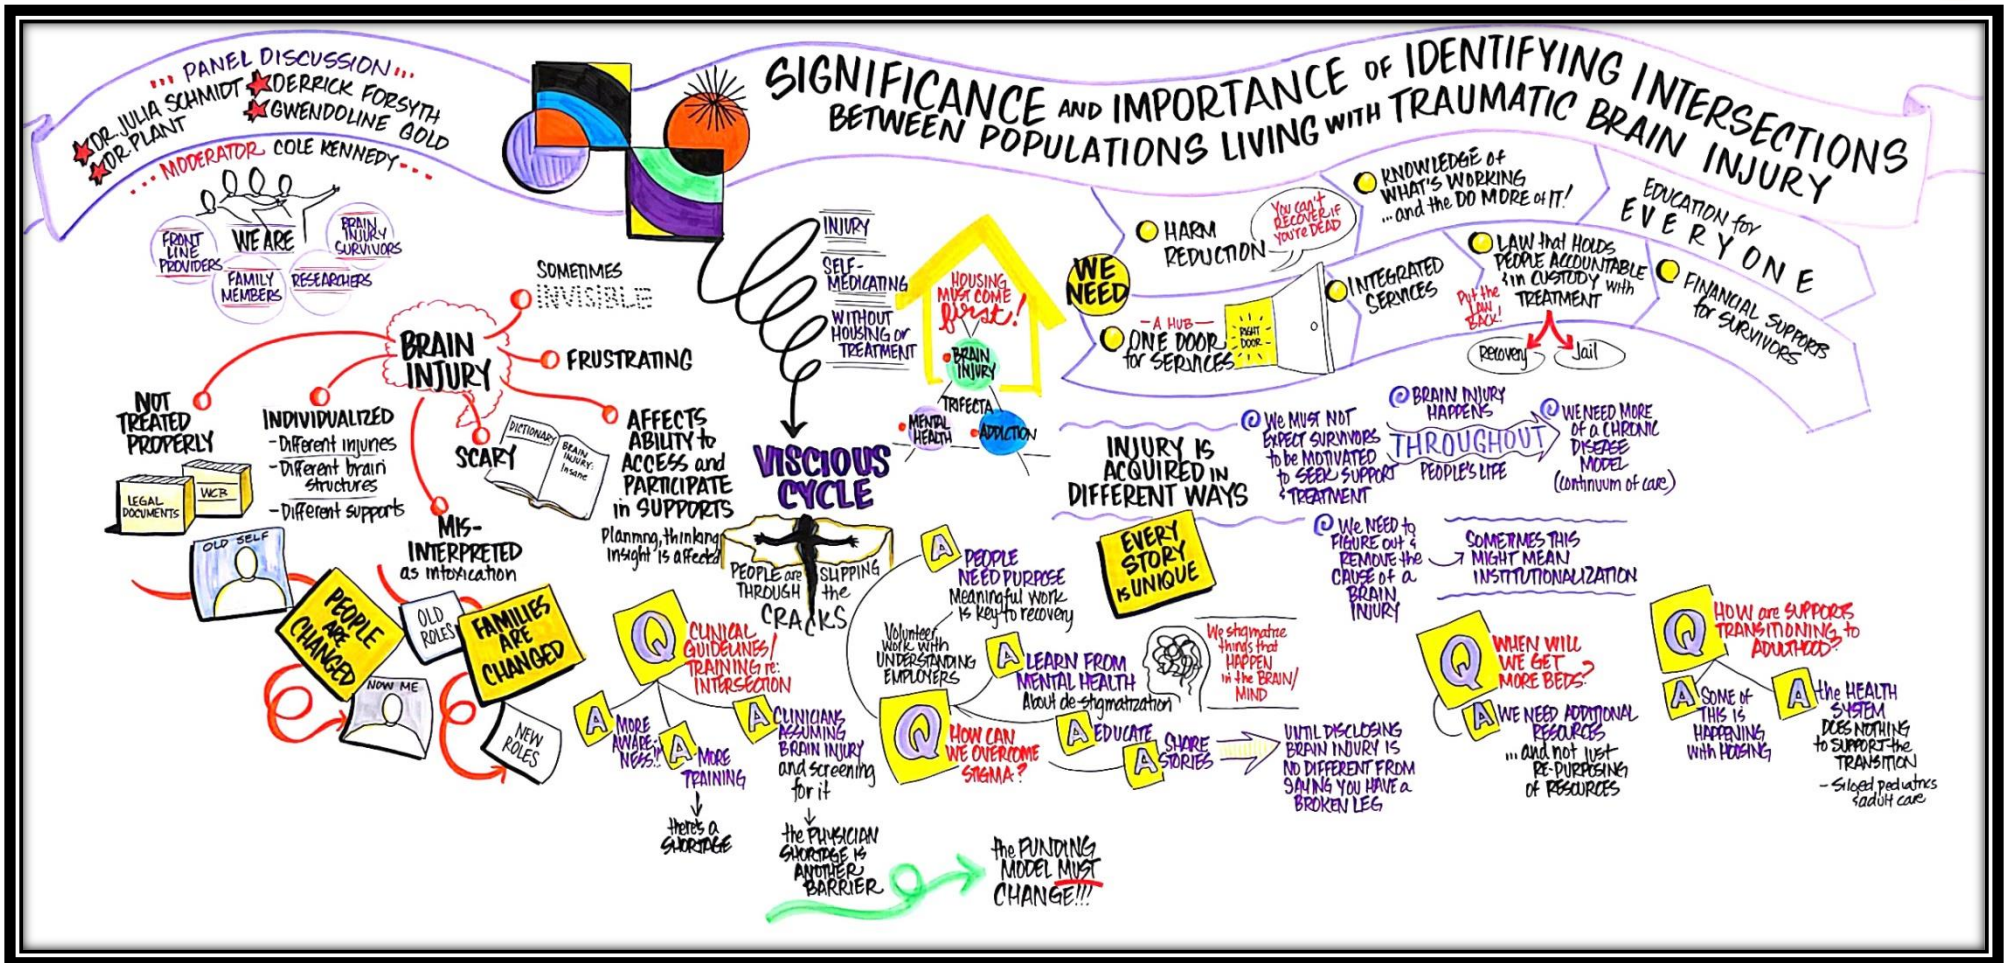 ... PANEL DISCUSSION ...
DR. JULIA SCHMIDT
DERRICK FORSYTH
DR. PLANT
GWENDOLINE GOLD
... MODERATOR COLE KENNEDY ...
SIGNIFICANCE AND IMPORTANCE OF IDENTIFYING INTERSECTIONS
BETWEEN POPULATIONS LIVING WITH TRAUMATIC BRAIN INJURY
WE ARE
FRONT
LINE
PROVIDERS
FAMILY
MEMBERS
RESEARCHERS
BRAIN
INJURY
SURVIVORS
BRAIN
INJURY
SOMETIMES
INVISIBLE
FRUSTRATING
AFFECTS
ABILITY to
ACCESS and
PARTICIPATE
in SUPPORTS
Planning, thinking,
insight is affected
SCARY
DICTIONARY
BRAIN
INJURY:
Insane
MIS-
INTERPRETED
as intoxication
INDIVIDUALIZED
- Different injuries
- Different brain
structures
- Different supports
NOT
TREATED
PROPERLY
LEGAL
DOCUMENTS
WCB
OLD SELF
PEOPLE
ARE
CHANGED
NOW ME
OLD
ROLES
FAMILIES
ARE
CHANGED
NEW
ROLES
INJURY
SELF-
MEDICATING
WITHOUT
HOUSING or
TREATMENT
VISCIOUS
CYCLE
PEOPLE are SLIPPING
THROUGH the
CRACKS
HOUSING
MUST COME
first!
BRAIN
INJURY
TRIFECTA
MENTAL
HEALTH
ADDICTION
WE
NEED
HARM
REDUCTION
You can't
RECOVER if
you're DEAD
KNOWLEDGE of
WHAT'S WORKING
...and the DO MORE of IT!
EDUCATION for
EVERYONE
- A HUB -
ONE DOOR
for SERVICES
RIGHT
DOOR
INTEGRATED
SERVICES
LAW that HOLDS
PEOPLE ACCOUNTABLE
& in CUSTODY with
TREATMENT
Put the
LAW
BACK!
Recovery
Jail
FINANCIAL SUPPORTS
for SURVIVORS
INJURY IS
ACQUIRED IN
DIFFERENT WAYS
EVERY
STORY
is UNIQUE
WE MUST NOT
EXPECT SURVIVORS
to be MOTIVATED
to SEEK SUPPORT
& TREATMENT
BRAIN INJURY
HAPPENS
THROUGHOUT
PEOPLE'S LIFE
WE NEED MORE
of a CHRONIC
DISEASE
MODEL
(continuum of care)
We NEED to
FIGURE OUT &
REMOVE the
CAUSE of a
BRAIN
INJURY
SOMETIMES THIS
MIGHT MEAN
INSTITUTIONALIZATION
Q
CLINICAL
GUIDELINES/
TRAINING re:
INTERSECTION
A
MORE
AWARE-
NESS!!
A
MORE
TRAINING
there's a
SHORTAGE
A
CLINICIANS
ASSUMING
BRAIN INJURY
and screening
for it
the PHYSICIAN
SHORTAGE IS
ANOTHER
BARRIER
the FUNDING
MODEL MUST
CHANGE!!!
Q
HOW CAN
WE OVERCOME
STIGMA?
A
PEOPLE
NEED PURPOSE
Meaningful work
is key to recovery
Volunteer,
work with
UNDERSTANDING
EMPLOYERS
A
LEARN FROM
MENTAL HEALTH
About de-stigmatization
We stigmatize
things that
HAPPEN
in the BRAIN/
MIND
A
EDUCATE
A
SHARE
STORIES
UNTIL DISCLOSING
BRAIN INJURY IS
NO DIFFERENT FROM
SAYING YOU HAVE a
BROKEN LEG
Q
WHEN WILL
WE GET
MORE BEDS?
A
WE NEED ADDITIONAL
RESOURCES
...and not just
RE-PURPOSING
of RESOURCES
Q
HOW are SUPPORTS
TRANSITIONING to
ADULTHOOD?
A
SOME of
THIS IS
HAPPENING
with HOUSING
A
the HEALTH
SYSTEM
DOES NOTHING
to SUPPORT the
TRANSITION
- Siloed pediatrics
& adult care